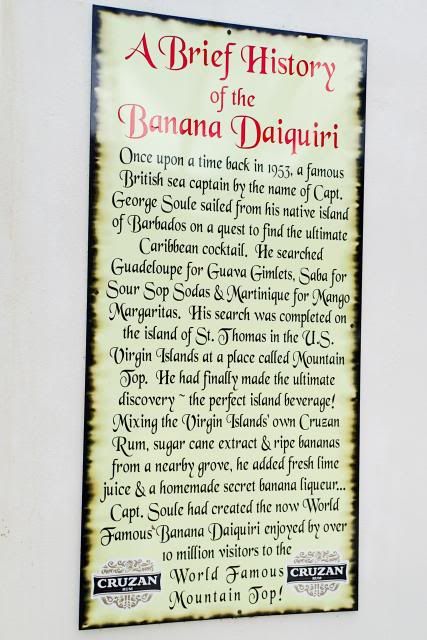 A Brief History
of the
Banana Daiquiri
Once upon a time back in 1953, a famous
British sea captain by the name of Capt.
George Soule sailed from his native island
of Barbados on a quest to find the ultimate
Caribbean cocktail. He searched
Guadeloupe for Guava Gimlets, Saba for
Sour Sop Sodas & Martinique for Mango
Margaritas. His search was completed on
the island of St. Thomas in the U.S.
Virgin Islands at a place called Mountain
Top. He had finally made the ultimate
discovery ~ the perfect island beverage!
Mixing the Virgin Islands' own Cruzan
Rum, sugar cane extract & ripe bananas
from a nearby grove, he added fresh lime
juice & a homemade secret banana liqueur...
Capt. Soule had created the now World
Famous Banana Daiquiri enjoyed by over
10 million visitors to the
World Famous
Mountain Top!
CRUZAN
RUM
CRUZAN
RUM